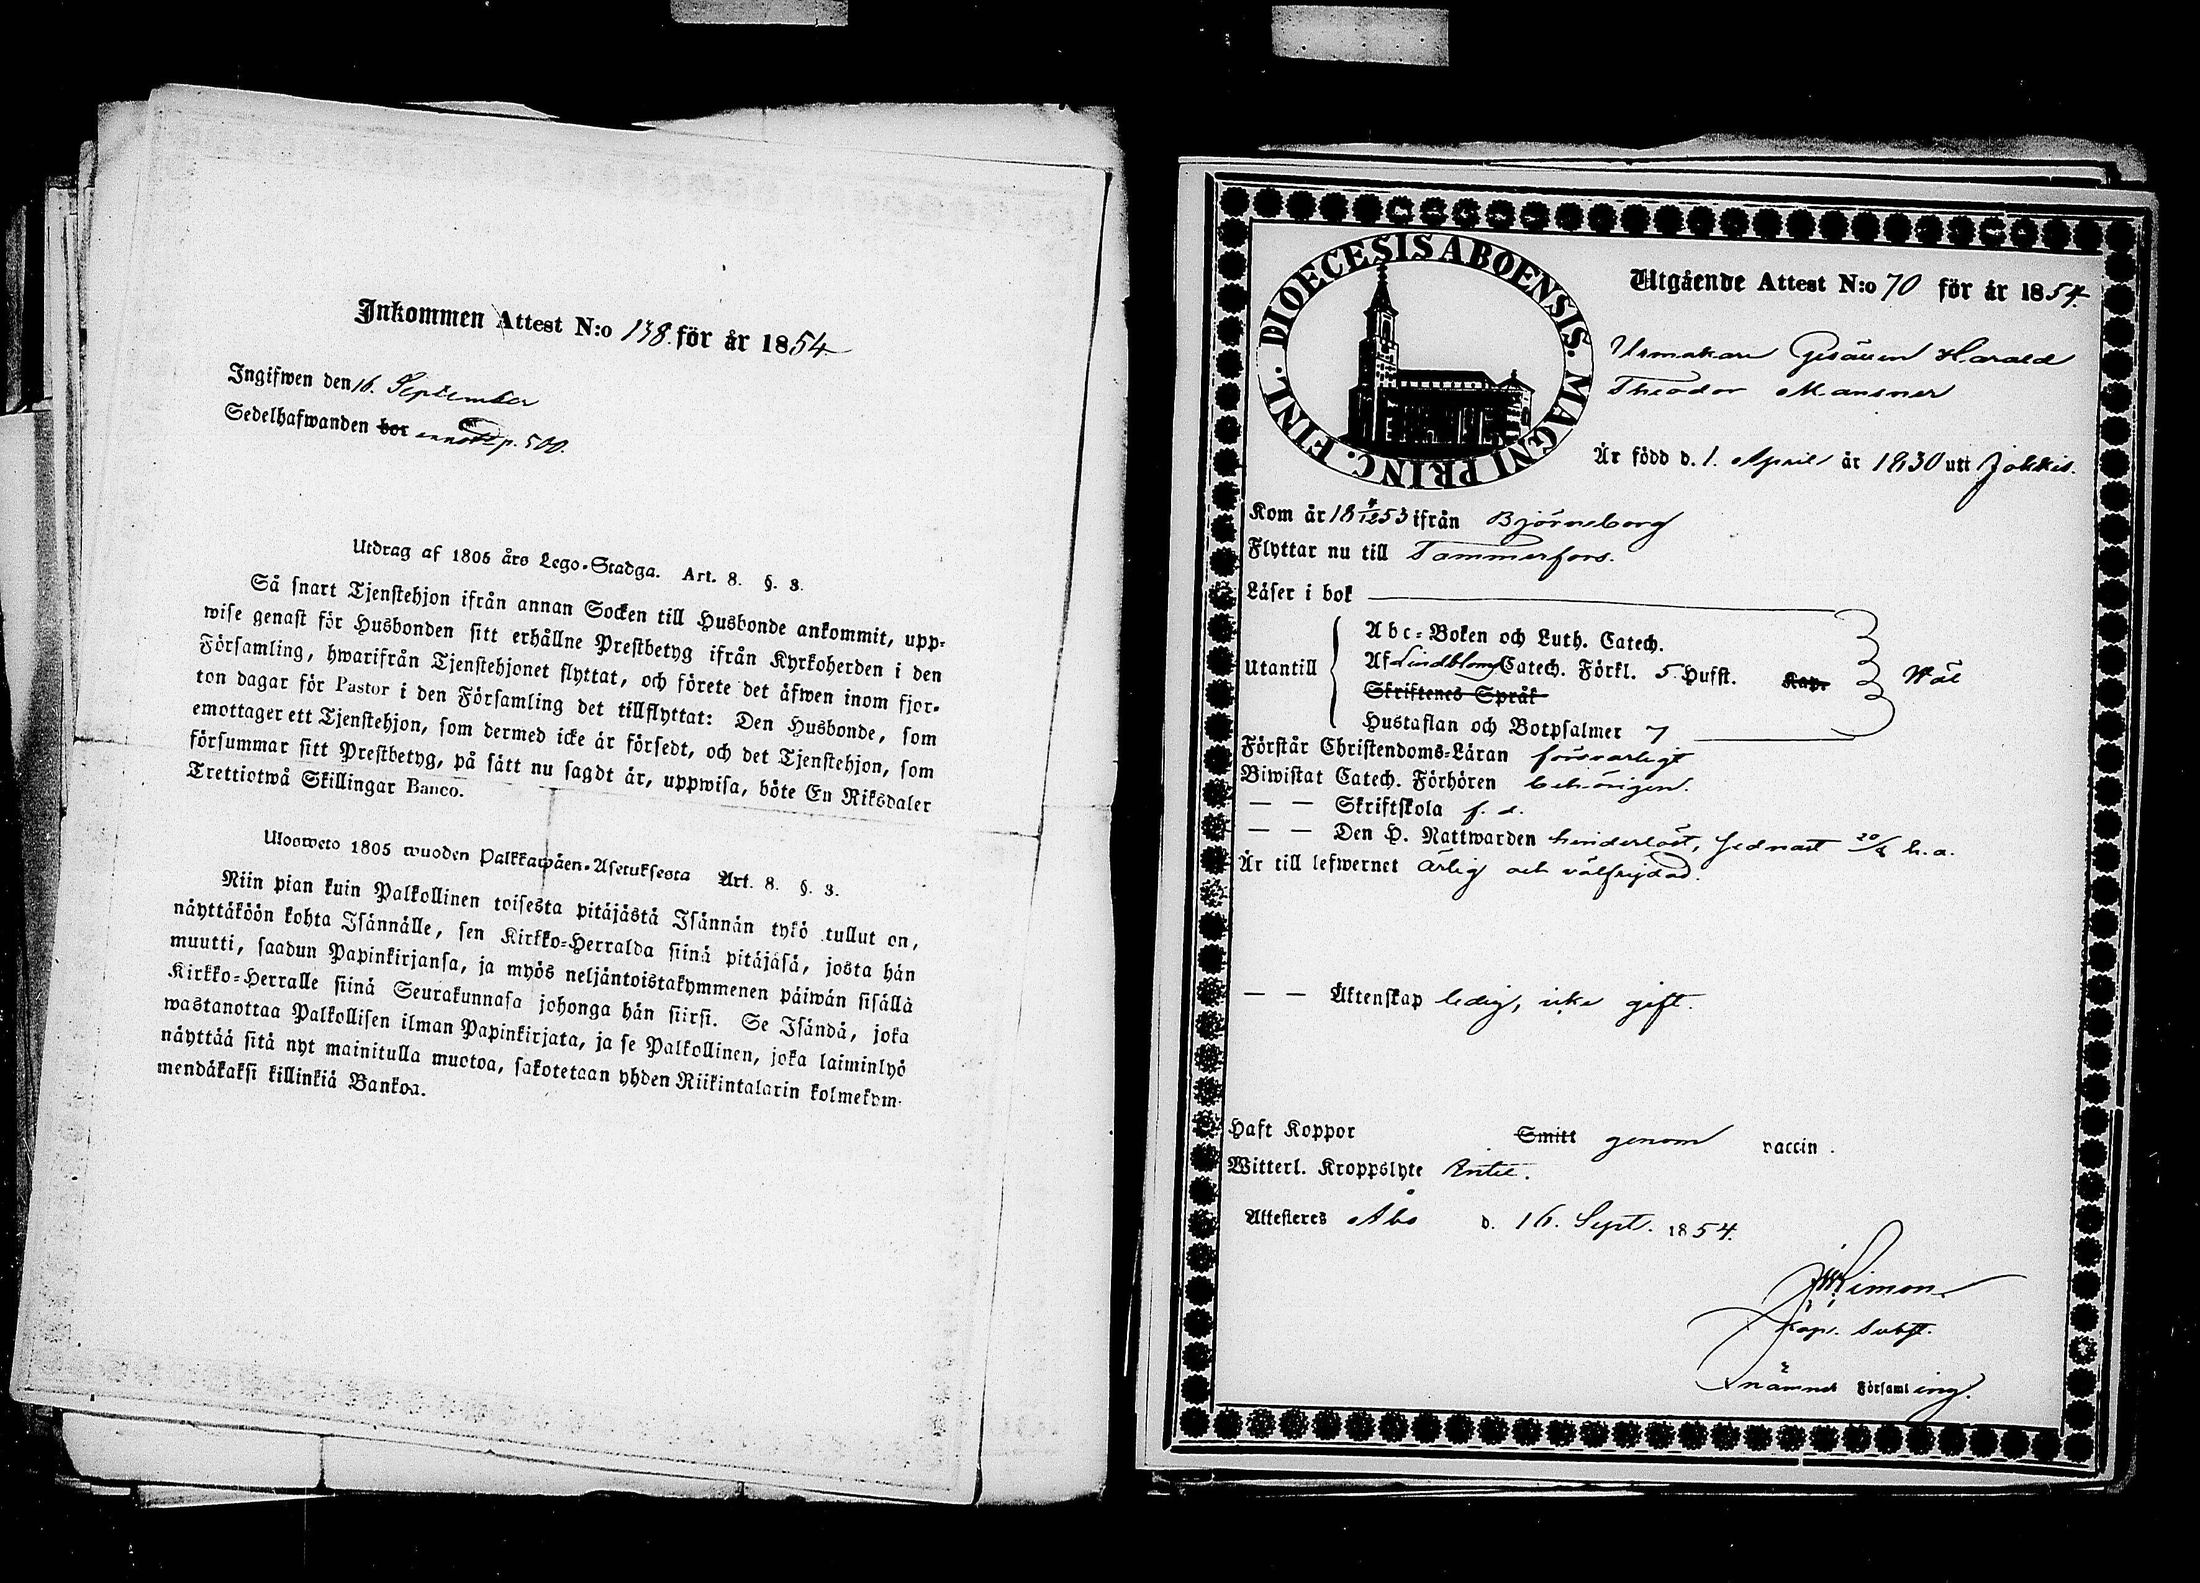 Inkommen Attest N:o 138. för år 1854
Ingifwen den 16. September
Sedelhafwanden bor p. 500.
Utdrag af 1805 års Lego-Stadga. Art. 8. §. 3.
Så snart Tjenstehjon ifrån annan Socken till Husbonde ankommit, upp-
wise genast för Husbonden sitt erhållne Prestbetyg ifrån Kyrkoherden i den
Församling, hwarifrån Tjenstehjonet flyttat, och förete det äfwen inom fjor-
ton dagar för Pastor i den Församling det tillflyttat: Den Husbonde, som
emottager ett Tjenstehjon, som dermed icke är försedt, och det Tjenstehjon, som
försummar sitt Prestbetyg, på sätt nu sagdt är, uppwisa, böte En Riksdaler
Trettiotwå Skillingar Banco.
Ulosweto 1805 wuoden Palkkawäen-Asetuksesta Art. 8. §. 3.
Niin pian kuin Palkollinen toisesta pitäjästä Isännän tykö tullut on,
näyttäköön kohta Isännälle, sen Kirkko-Herralda siinä pitäjäsä, josta hän
muutti, saadun Papinkirjansa, ja myös neljäntoistakymmenen päiwän sisällä
Kirkko-Herralle siinä Seurakunnasa johonga hän siirsi. Se Isändä, joka
wastanottaa Palkollisen ilman Papinkirjata, ja se Palkollinen, joka laiminlyö
näyttää sitä nyt mainitulla muotoa, sakotetaan yhden Riikintalarin kolmekym-
mendäkaksi killinkiä Bankoa.
DIOECESIS ABOENSIS. MAGNI PRINC. FINL.
Utgående Attest N:o 70 för år 1854.
Urmakare Gesällen Harald
Theodor Mansner
Är född d. 1. April år 1830 uti Jokkis.
Kom år 18 53 ifrån Björneborg
Flyttar nu till Tammerfors.
Läser i bok
Utantill
Abc-Boken och Luth. Catech.
Af Lindbloms Catech. Förkl. 5. Hufst. Kap. Wäl
Skriftenes Språk
Hustaflan och Botpsalmer 7
Förstår Christendoms-Läran försvarligt
Biwistat Catech. Förhören behörigen.
— — Skriftskola f. d.
— — Den H. Nattwarden hinderlöst, sednast h. a.
Är till lefwernet ärlig och välfrejdad.
— — Äktenskap ledig, icke gift.
Haft Koppor Smitt genom vaccin.
Witterl. Kroppslyte Intet.
Attesteres Åbo d. 16. Sept. 1854.
Kapl. Subst.
i nämnd Församling.